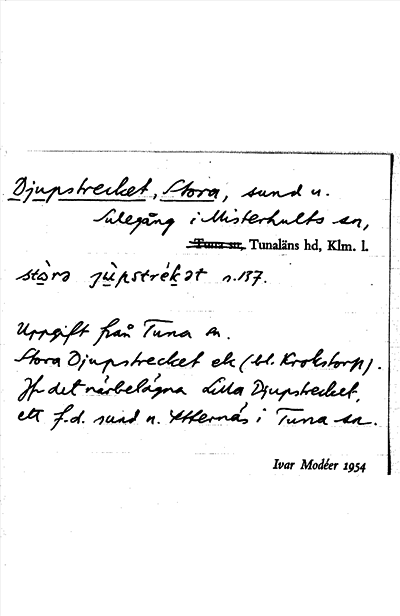 Djupstrecket, Stora, sund n.
Sulegång i Misterhults sn,
Tuna sn, Tunaläns hd, Klm. l.
stò̱rə jù̱pstréḵət s. 137.
Uppgift från Tuna sn.
Stora Djupstrecket ek (bl. Krokstorp).
Jfr det närbelägna Lilla Djupstrecket,
ett f.d. sund n. Ytternäs i Tuna sn.
Ivar Modéer 1954